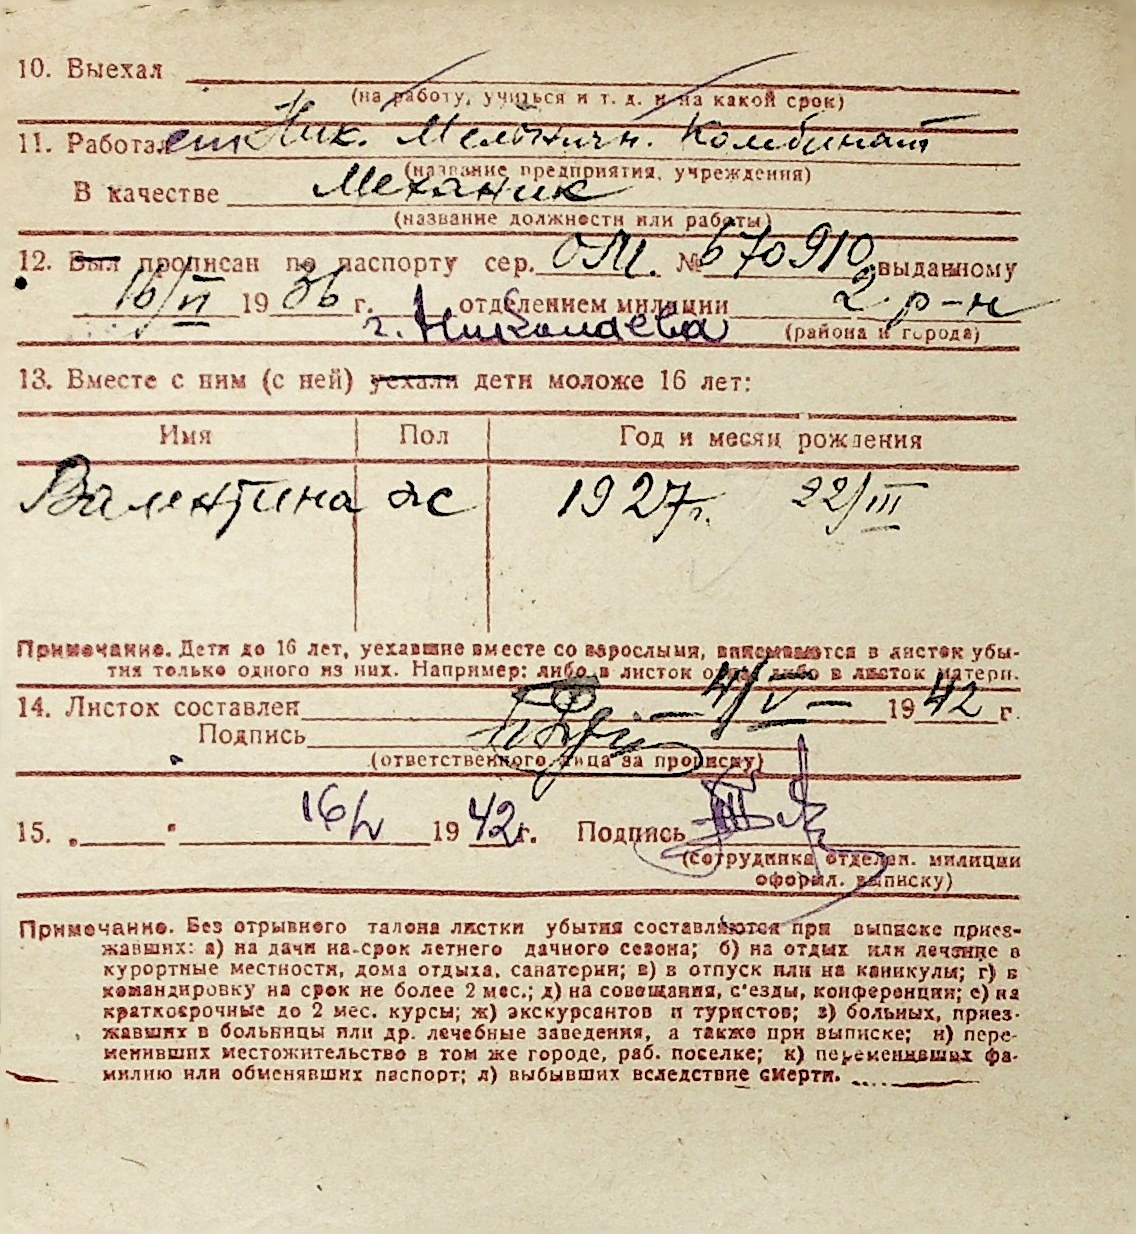 10. Выехал
(на работу, учиться и т. д. и на какой срок)
11. Работает Ник. Мельничн. Комбинат
(название предприятия, учреждения)
В качестве Механик
(название должности или работы)
12. Был прописан по паспорту сер. ОМ. № 670910, выданному
16/VI 1936 г. отделением милиции 2. р-н
г. Николаева (района и города)
13. Вместе с ним (с ней) уехали дети моложе 16 лет:
Имя Пол Год и месяц рождения
Валентина ж 1927г. 22/III
Примечание. Дети до 16 лет, уехавшие вместе со взрослыми, вписываются в листок убы-
тия только одного из них. Например: либо в листок отца либо в листок матери.
14. Листок составлен 4/V — 1942 г.
Подпись
(ответственного лица за прописку)
15. „ " 16/V 1942 г. Подпись
(сотрудника отделен. милиции
оформл. выписку)
Примечание. Без отрывного талона листки убытия составляются при выписке приез-
жавших: а) на дачи на-срок летнего дачного сезона; б) на отдых или лечение в
курортные местности, дома отдыха, санатории; в) в отпуск или на каникулы; г) в
командировку на срок не более 2 мес.; д) на совещания, с'езды, конференции; е) на
краткосрочные до 2 мес. курсы; ж) экскурсантов и туристов; з) больных, приез-
жавших в больницы или др. лечебные заведения, а также при выписке; и) пере-
менивших местожительство в том же городе, раб. поселке; к) переменивших фа-
милию или обменявших паспорт; л) выбывших вследствие смерти.